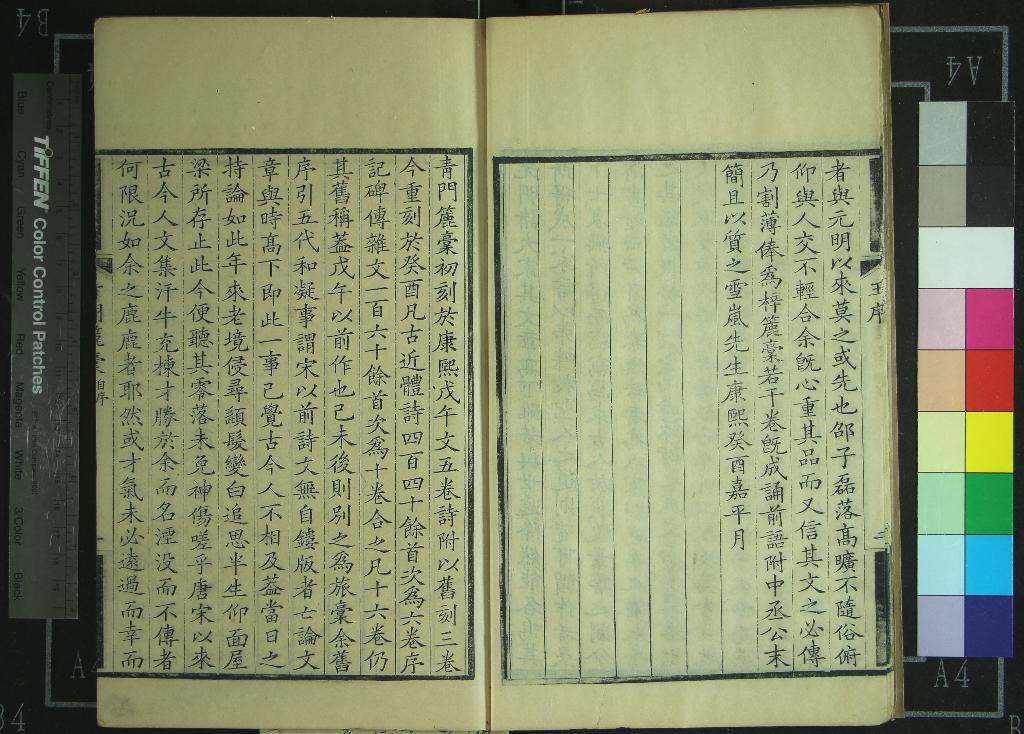 者與元明以來莫之或先也邵子磊落髙曠不隨俗俯
仰與人交不輕合余旣心重其品而又信其文之必傳
乃割薄俸爲梓簏稾若干卷旣成誦前語附中丞公末
簡且以質之雪嵐先生康熙癸酉嘉平月
王序
二
靑門簏稾初刻於康熙戊午文五卷詩附以舊刻三卷
今重刻於癸酉凡古近體詩四百四十餘首次爲六卷序
記碑傳雜文一百六十餘首次爲十卷合之凡十六卷仍
其舊稱葢戊午以前作也已未後則别之爲旅稾余舊
序引五代和凝事謂宋以前詩文無自鏤版者士論文
章與時髙下即此一事已覺古今人不相及葢當日之
持論如此年來老境侵尋頴髮變白追思半生仰面屋
梁所存止此今便聽其零落未免神傷嗟乎唐宋以來
古今人文集汗牛充棟才勝於余而名湮没而不傳者
何限況如余之鹿鹿者耶然或才氣未必遠過而幸而
門簏稾 自序
一
TIFFEN Color Control Patches
Blue
Cyan
Green
Yellow
Red
Magenta
White
3/Color
Black
A4
A4
B4